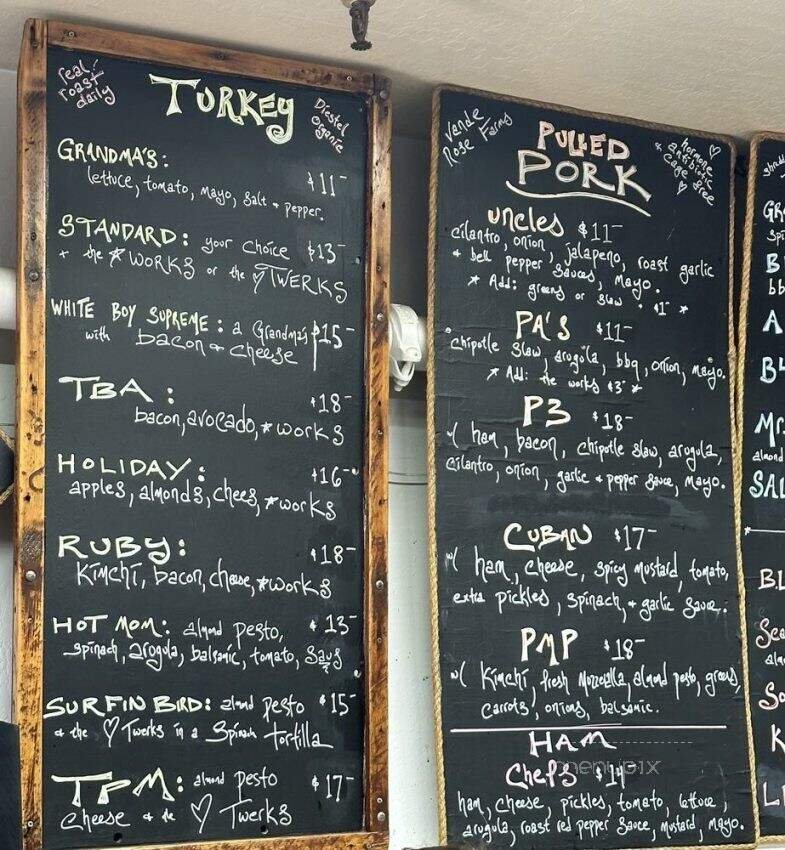 real!
roast
daily
TURKEY
Diestel
Organic
GRANDMA'S:
$11-
lettuce, tomato, mayo, salt & pepper.
STANDARD: your choice $13-
+ the * WORKS or the ♡ TWERKS
WHITE BOY SUPREME: a Grandma's $15-
with bacon & cheese
TBA: $18-
bacon, avocado, * works
HOLIDAY: $16-
apples, almonds, chees, * works
RUBY: $18-
Kimchi, bacon, cheese, * works
HOT MOM: almond pesto, $13-
spinach, arogula, balsamic, tomato,
SURFIN BIRD: almond pesto $15-
& the ♡ Twerks in a Spinach tortilla
TPM: almond pesto $17-
cheese & the ♡ Twerks
Vande
Rose Farms
PULLED
PORK
hormone
antibiotic
& cage free
♡
uncles $11-
cilantro, onion, jalapeno, roast garlic
& bell pepper sauces, mayo.
* Add: greens or slaw + $1- *
PA'S $11-
chipotle slaw, arogula, bbq, onion, mayo.
* Add: the works $3- *
P3 $18-
w/ ham, bacon, chipotle slaw, arogula,
cilantro, onion, garlic & pepper sauce, mayo.
CUBAN $17-
w/ ham, cheese, spicy mustard, tomato,
extra pickles, spinach, & garlic sauce.
PMP $18-
w/ Kimchi, fresh Mozzerella, almond pesto, greens,
carrots, onions, balsamic.
HAM
menupix
Chefs
ham, cheese, pickles, tomato, lettuce,
arugula, roast red pepper sauce, mustard, mayo.
GR
B
bb
A
BL
Mr.
almond
SAL
BL
Sca
alm
So
K
L